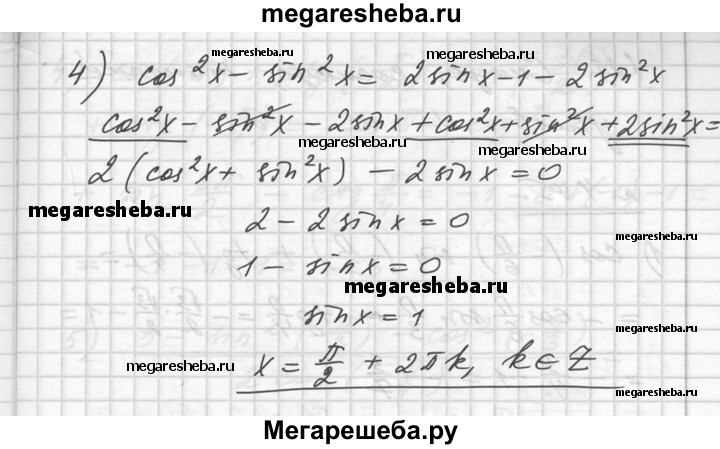 megaresheba.ru
megaresheba.ru megaresheba.ru
4) cos²x − sin²x = 2sinx − 1 − 2sin²x
cos²x − sin²x − 2sinx + cos²x + sin²x + 2sin²x =
megaresheba.ru megaresheba.ru
2(cos²x + sin²x) − 2sinx = 0
megaresheba.ru
2 − 2sinx = 0
megaresheba.ru
1 − sinx = 0
megaresheba.ru
sinx = 1
megaresheba.ru
x = π/2 + 2πk, k ∈ Z
megaresheba.ru
Мегарешеба.ру